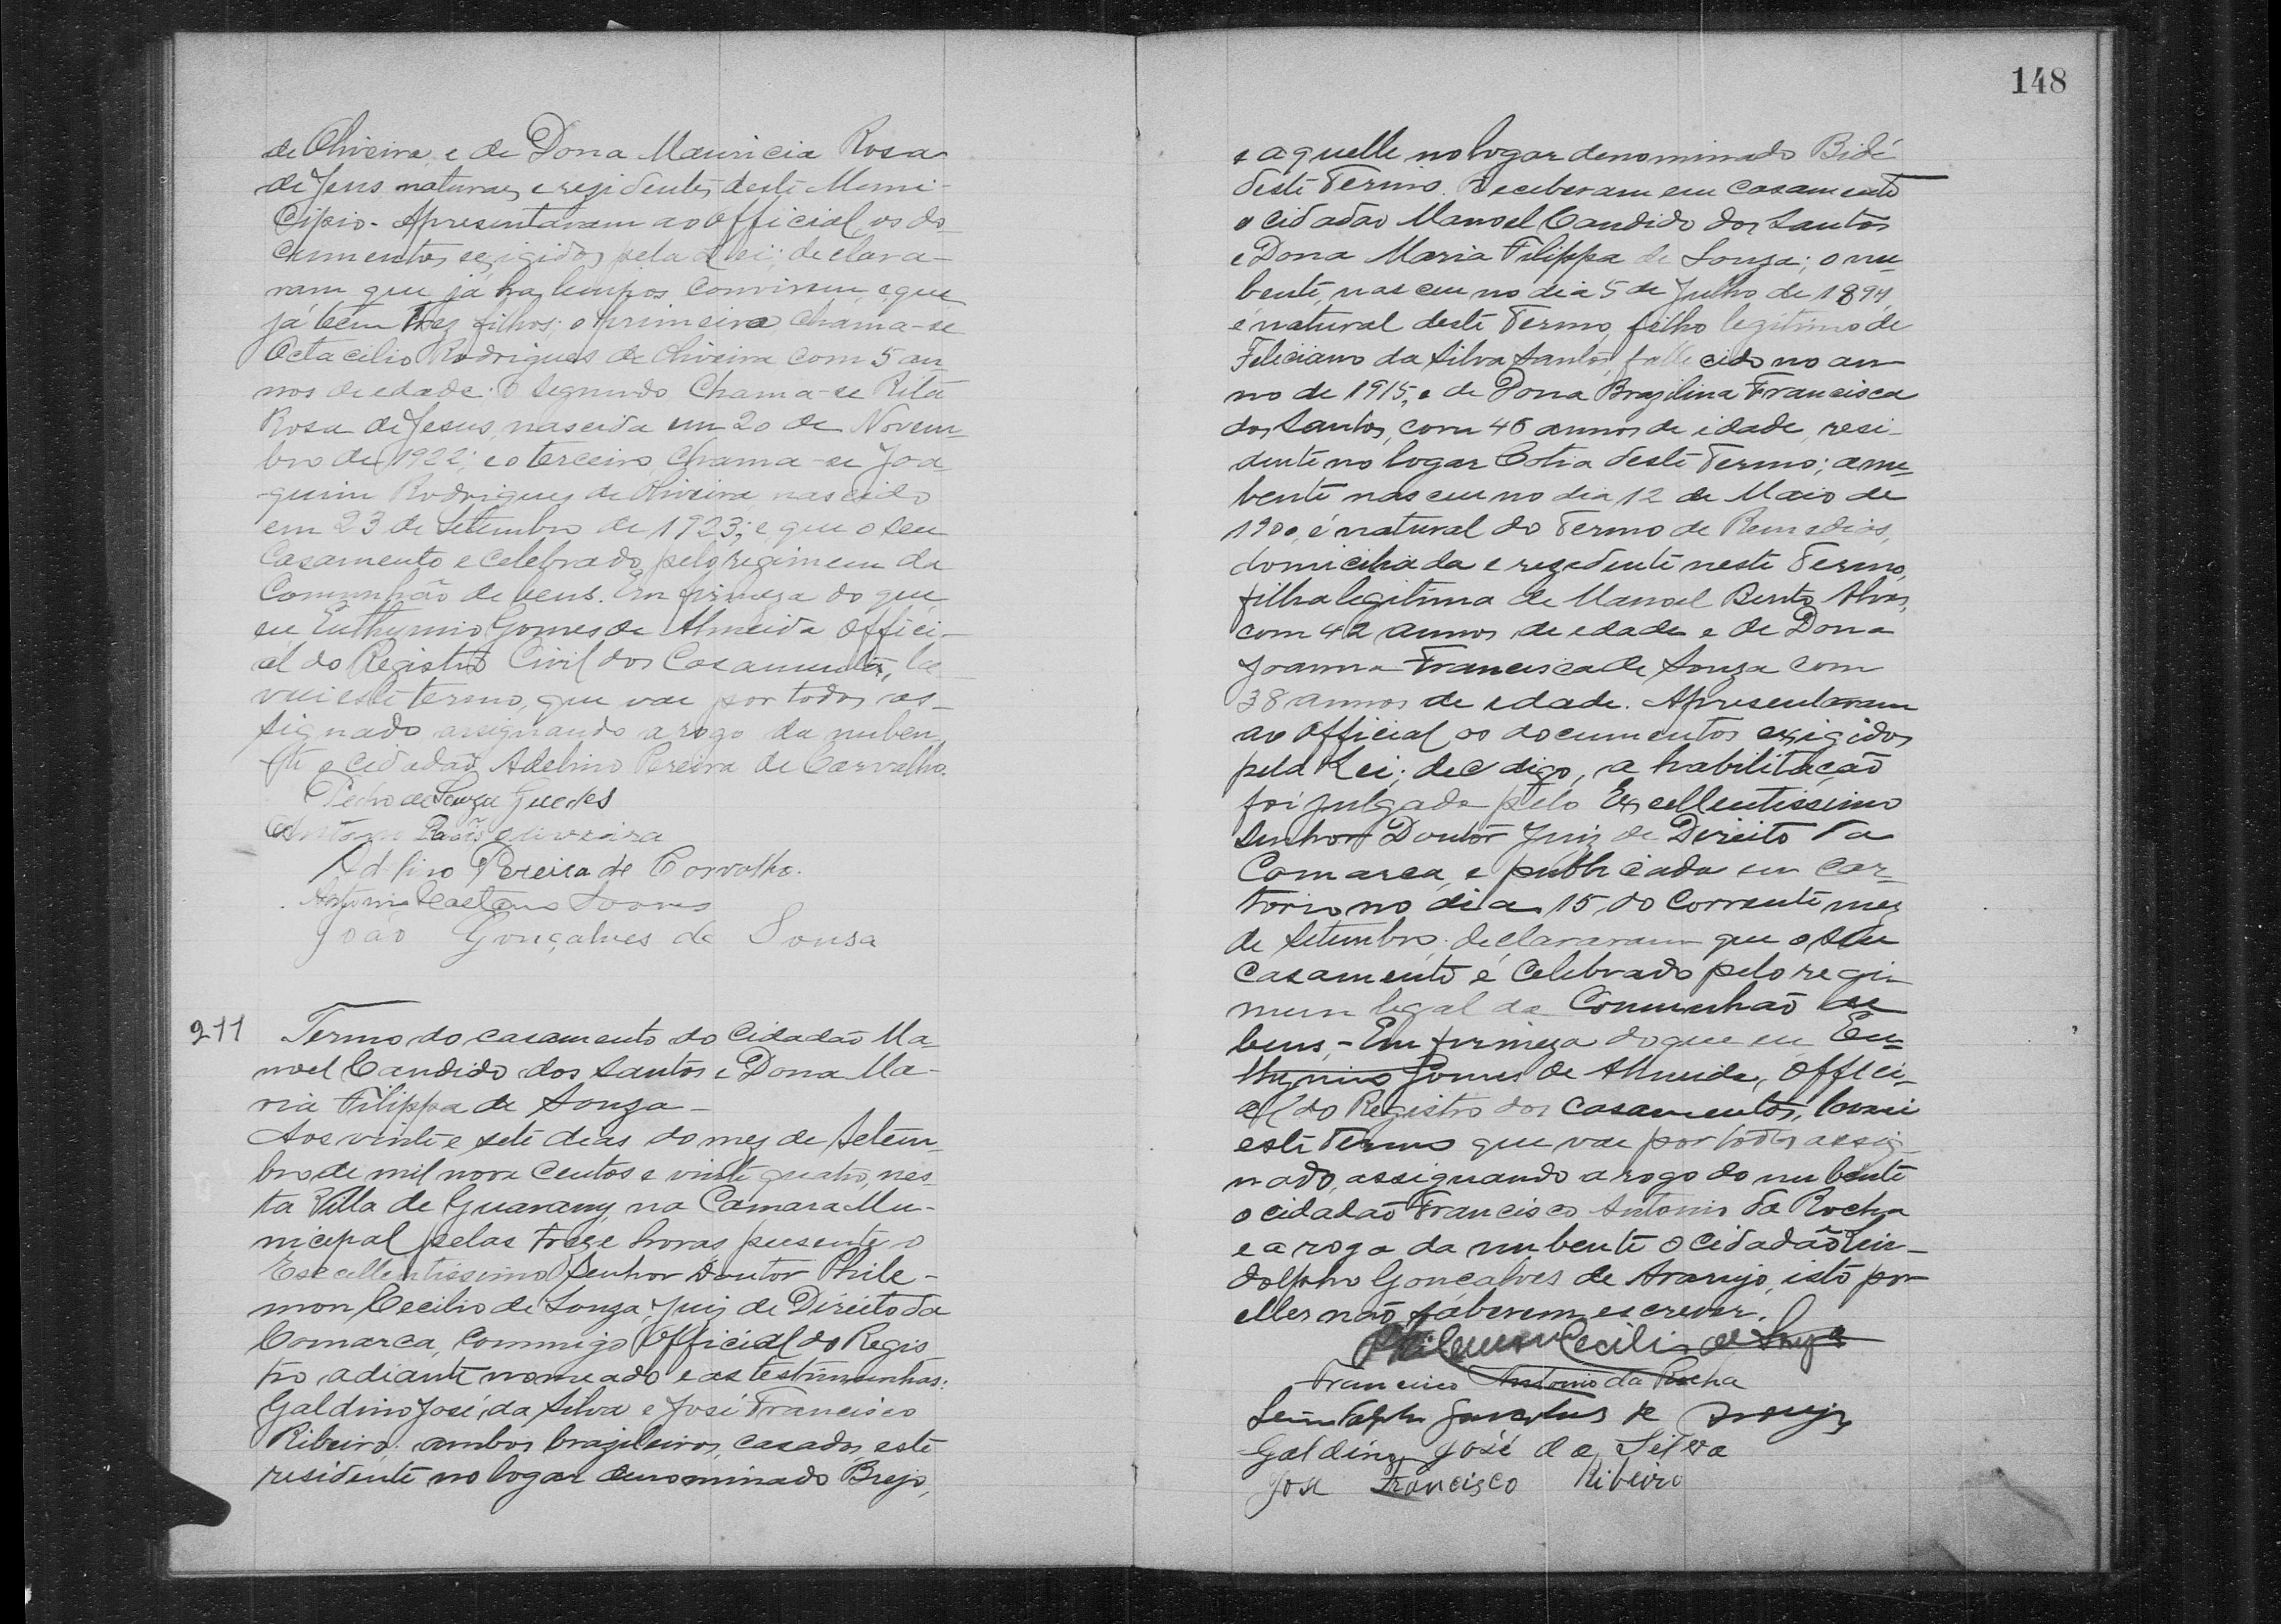 de Oliveira, e de Dona Mauricia Rosa
de Jesus, naturaes e rezidentes deste Muni-
cipio. Apresentaram ao official os do-
cumentos exigidos pela Lei; declara-
ram que já ha tempos convivem, e que
já têm trez filhos; o primeiro chama-se
Octacilio Rodrigues de Oliveira com 5 an-
nos de edade; o segundo chama-se Rita
Rosa de Jesus, nascida em 20 de Novem-
bro de 1922; e o terceiro chama-se Joa-
quim Rodrigues de Oliveira nascido
em 23 de Setembro de 1923; e que o seu
casamento e celebrado pelo regimem da
Comunhão de bens. Em firmeza do que,
eu Euthymio Gomes de Almeida Offici-
al do Registro Civil dos Casamentos, la-
vrei este termo, que vae por todos as-
signado assignando a rogo da nuben-
te o cidadão Adelino Pereira de Carvalho.
Pedro de Souza Guedes
Antonio Oliveira
Adlino Pereira de Carvalho.
Antonio Caetano Soares
João Gonçalves de Sousa
211 Termo do casamento do cidadão Ma-
noel Candido dos Santos e Dona Ma-
ria Filippa de Souza-
Aos vinte e sete dias do mez de Setem-
bro de mil nove centos e vinte quatro, nes-
ta Villa de Guarany, na Camara Mu-
nicipal pelas treze horas, presente o
Excellentissimo Senhor Doutor Phile-
mon Cecilio de Souza, Juiz de Direito da
Comarca, commigo Official do Regis-
tro adiante nomeado e as testimunhas:
Galdino José da Silva e José Francisco
Ribeiro; ambos brazileiros, casados, este
residente no logar denominado Brejo,
148
e aquelle no logar denominado Bidé
deste Termo. Receberam em casamento
o cidadão Manoel Candido dos Santos
e Dona Maria Filippa de Souza; o nu-
bente, nasceu no dia 5 de Julho de 1894,
é natural deste Termo, filho legitimo de
Feliciano da Silva Santos, fallecido no an-
no de 1915, e de Dona Brazilina Francisca
dos Santos, com 45 annos de idade, resi-
dente no logar Cotia deste Termo; a nu-
bente nasceu no dia 12 de Maio de
1900, é natural do Termo de Remedios,
domiciliada e rezedente neste Termo,
filha legitima de Manoel Bento Alves,
com 42 annos de edade e de Dona
Joanna Francisca de Souza com
38 annos de edade. Apresentaram
ao Official os documentos exigidos
pela Lei; dec digo, a habilitação
foi julgada pelo Excellentissimo
Senhor Doutor Juiz de Direito da
Comarca, e publicada em car-
torio no dia 15 do corrente mez
de Setembro; declararam que o seu
casamento é celebrado pelo regi-
mem legal da Comunhão de
bens,- Em firmeza do que eu Eu-
thymio Gomes de Almeida, Offici-
al do Registro dos casamentos, lavrei
este Termo que vae por todos assig-
nado, assignando a rogo do nubente
o cidadão Francisco Antonio da Rocha
e a rogo da nubente o cidadão Lin-
dolpho Gonçalves de Araujo, isto por
elles não saberem escrever.
Philemon Cecilio de Souza
Francisco Antonio da Rocha
Lindolpho Gonçalves de Araujo
Galdino José da Silva
José Francisco Ribeiro